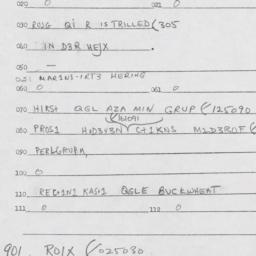 020 0 021 0
030 ROJG QI R IS TRILLED (305
040 IN D3R HEJX .
050 —
051 MAR1N1-IRT3 HERING
060 0 061 0
070 HIRSH QGL AZA MIN GRUP (/125090
080 PROS1 H1D3V3N CH1KNS M2D3ROF (/
090 PERLGRUPM,
100 0
110 REC1N1 KASI1 QGLE BUCKWHEAT
111 0 112 0
901. ROIX (/025030